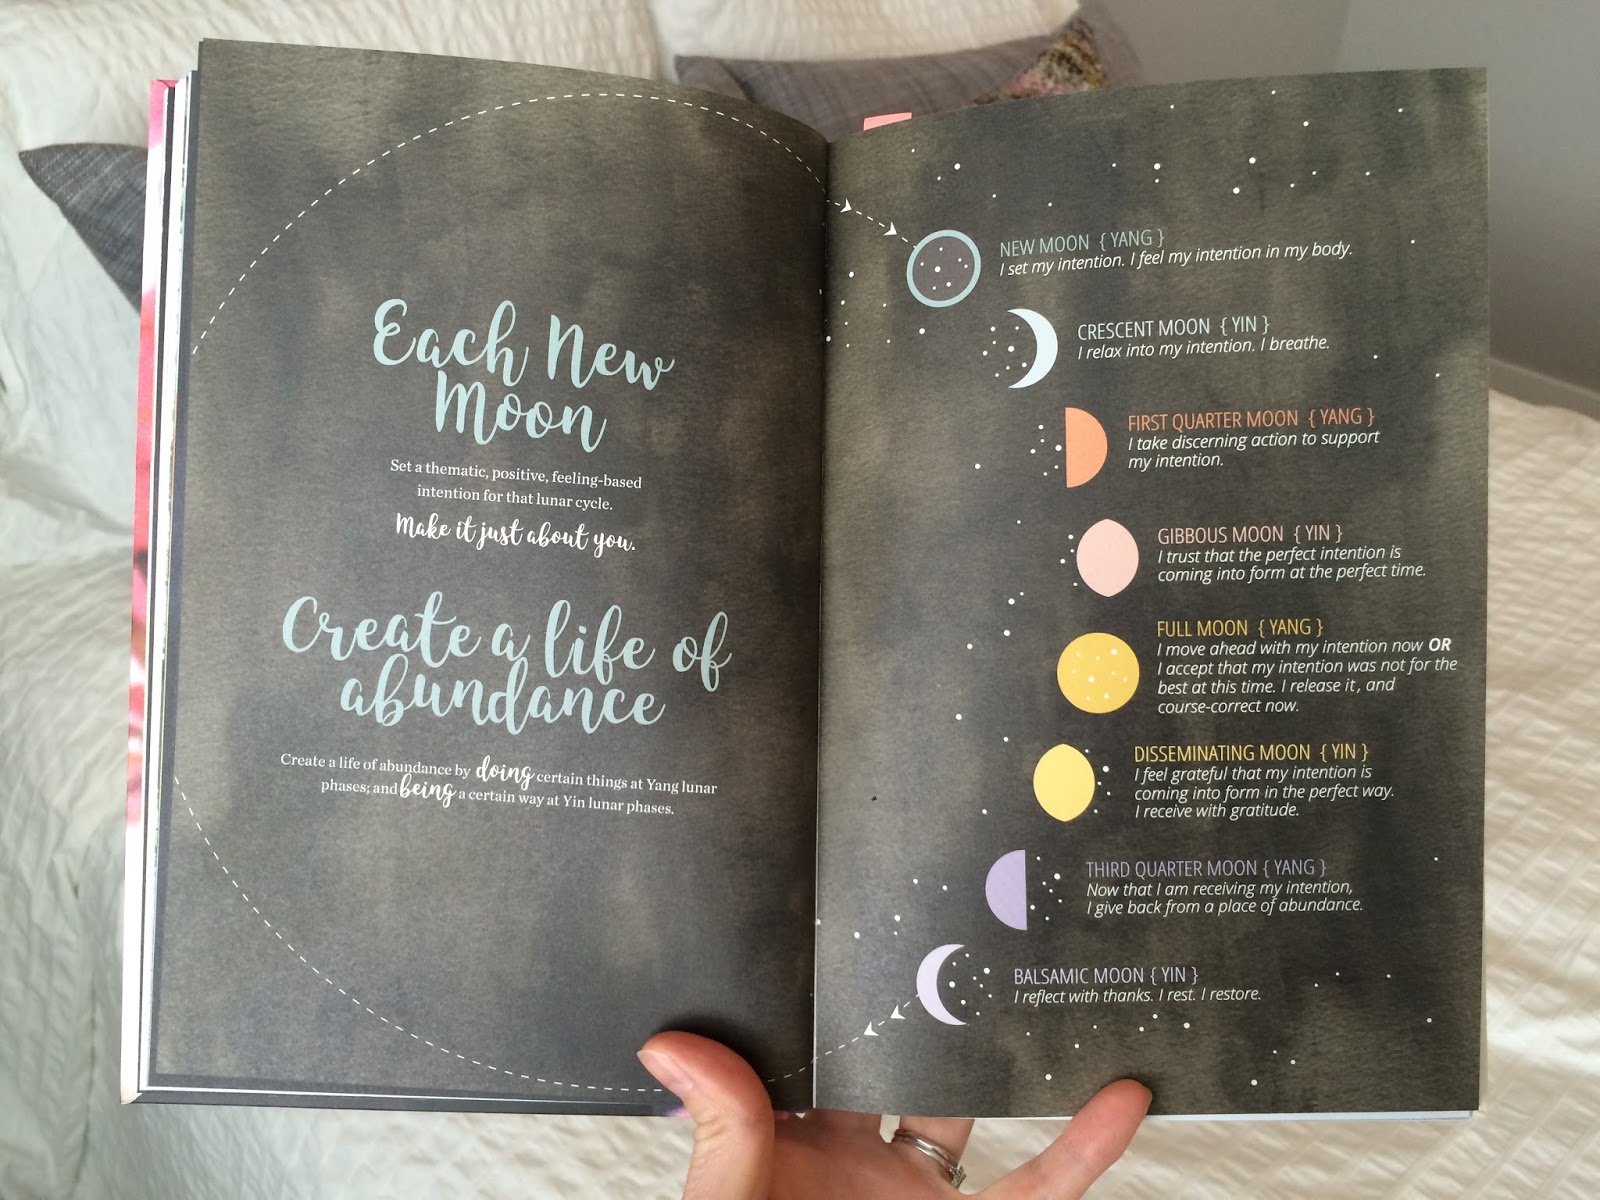 Each New
Moon
Set a thematic, positive, feeling-based
intention for that lunar cycle.
Make it just about you.
Create a life of
abundance
Create a life of abundance by doing certain things at Yang lunar
phases; and being a certain way at Yin lunar phases.
NEW MOON { YANG }
I set my intention. I feel my intention in my body.
CRESCENT MOON { YIN }
I relax into my intention. I breathe.
FIRST QUARTER MOON { YANG }
I take discerning action to support
my intention.
GIBBOUS MOON { YIN }
I trust that the perfect intention is
coming into form at the perfect time.
FULL MOON { YANG }
I move ahead with my intention now OR
I accept that my intention was not for the
best at this time. I release it, and
course-correct now.
DISSEMINATING MOON { YIN }
I feel grateful that my intention is
coming into form in the perfect way.
I receive with gratitude.
THIRD QUARTER MOON { YANG }
Now that I am receiving my intention,
I give back from a place of abundance.
BALSAMIC MOON { YIN }
I reflect with thanks. I rest. I restore.